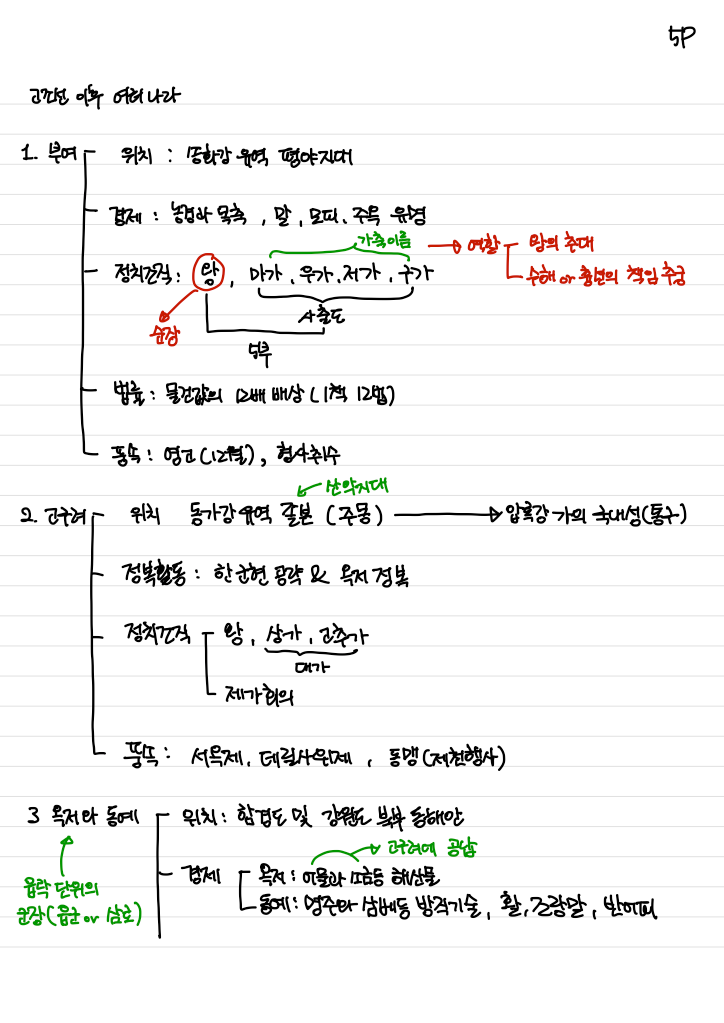 5P
고조선 이후 여러나라
1. 부여
위치 : 송화강 유역 평야지대
경제 : 농업과 목축, 말, 모피, 주옥 유명
가축이름 → 역할
왕의 추대
수해 or 흉년의 책임 추궁
정치조직: 왕, 마가, 우가, 저가, 구가
사출도
순장
5부
법률 : 물건값의 12배 배상 (1책 12법)
풍속 : 영고(12월), 형사취수
산악지대
2. 고구려
위치 동가강 유역 졸본 (주몽) → 압록강 가의 국내성(통구)
정복활동 : 한 군현 공략 & 옥저 정복
정치조직
왕, 상가, 고추가
대가
제가회의
풍속 : 서옥제, 데릴사위제, 동맹(제천행사)
3 옥저와 동예
위치 : 함경도 및 강원도 북부 동해안
고구려에 공납
경제
옥저 : 어물과 소금등 해산물
동예 : 명주와 삼베등 방직기술, 활, 조랑말, 반어피
읍락 단위의
군장(읍군 or 삼로)